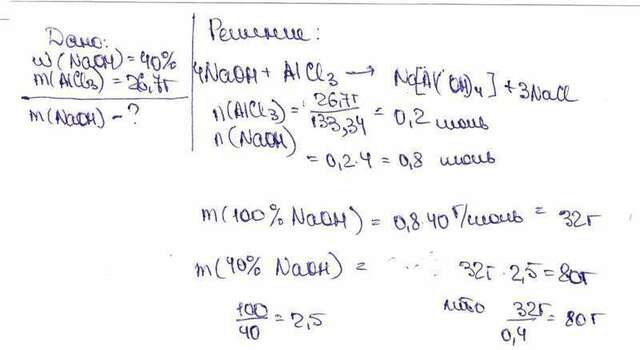 Дано:
w(NaOH)=40%
m(AlCl₃)=26,7г
m(NaOH)-?
Решение:
4NaOH+AlCl₃ → Na[Al(OH)₄]+3NaCl
n(AlCl₃)= 26,7г/133,34 = 0,2 моль
n(NaOH)
= 0,2·4=0,8 моль
m(100% NaOH) = 0,8·40 г/моль = 32г
m(40% NaOH) = 32г·2,5=80г
100/40=2,5
32г/0,4=80г